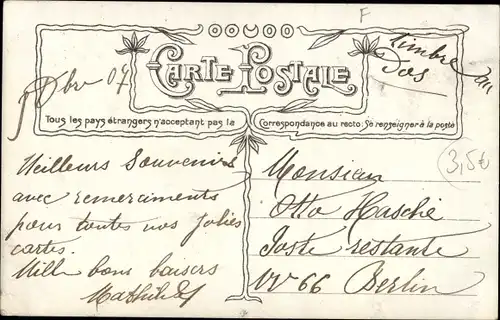 F
timbre au
Dos
CARTE POSTALE
Xbre 07
Tous les pays étrangers n'acceptant pas la Correspondance au recto: Se renseigner à la poste
3,5€
Meilleurs Souvenirs
avec remerciments
pour toutes vos jolies
cartes.
Mille bons baisers
Mathilde
Monsieur
Otto Hasché
Poste restante
W 66 Berlin